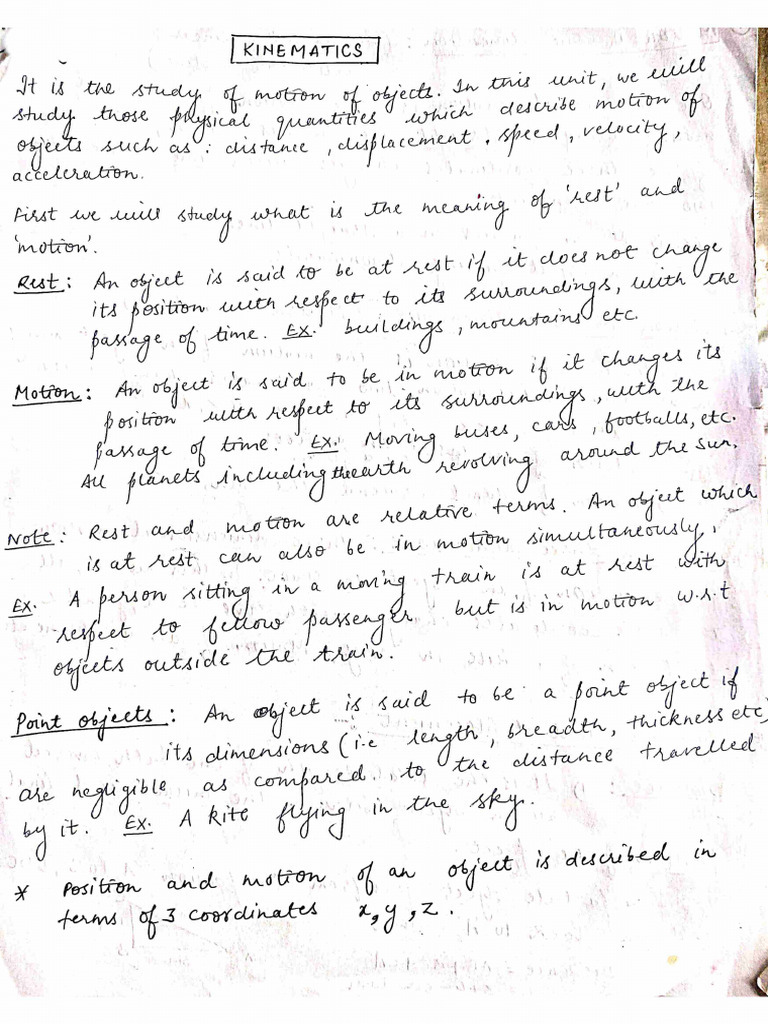 KINEMATICS
It is the study of motion of objects. In this unit, we will
study those physical quantities which describe motion of
objects such as : distance , displacement , speed , velocity ,
acceleration.
First we will study what is the meaning of 'rest' and
'motion'.
Rest : An object is said to be at rest if it does not change
its position with respect to its surroundings, with the
passage of time. EX. buildings , mountains etc.
Motion : An object is said to be in motion if it changes its
position with respect to its surroundings , with the
passage of time. EX. Moving buses, cars , footballs, etc.
All planets including the earth revolving around the sun.
Note : Rest and motion are relative terms. An object which
is at rest can also be in motion simultaneously.
EX. A person sitting in a moving train is at rest with
respect to fellow passenger but is in motion w.r.t
objects outside the train.
Point objects : An object is said to be a point object if
its dimensions (i.e length , breadth, thickness etc)
are negligible as compared to the distance travelled
by it. EX. A kite flying in the sky.
* Position and motion of an object is described in
terms of 3 coordinates x, y , z .